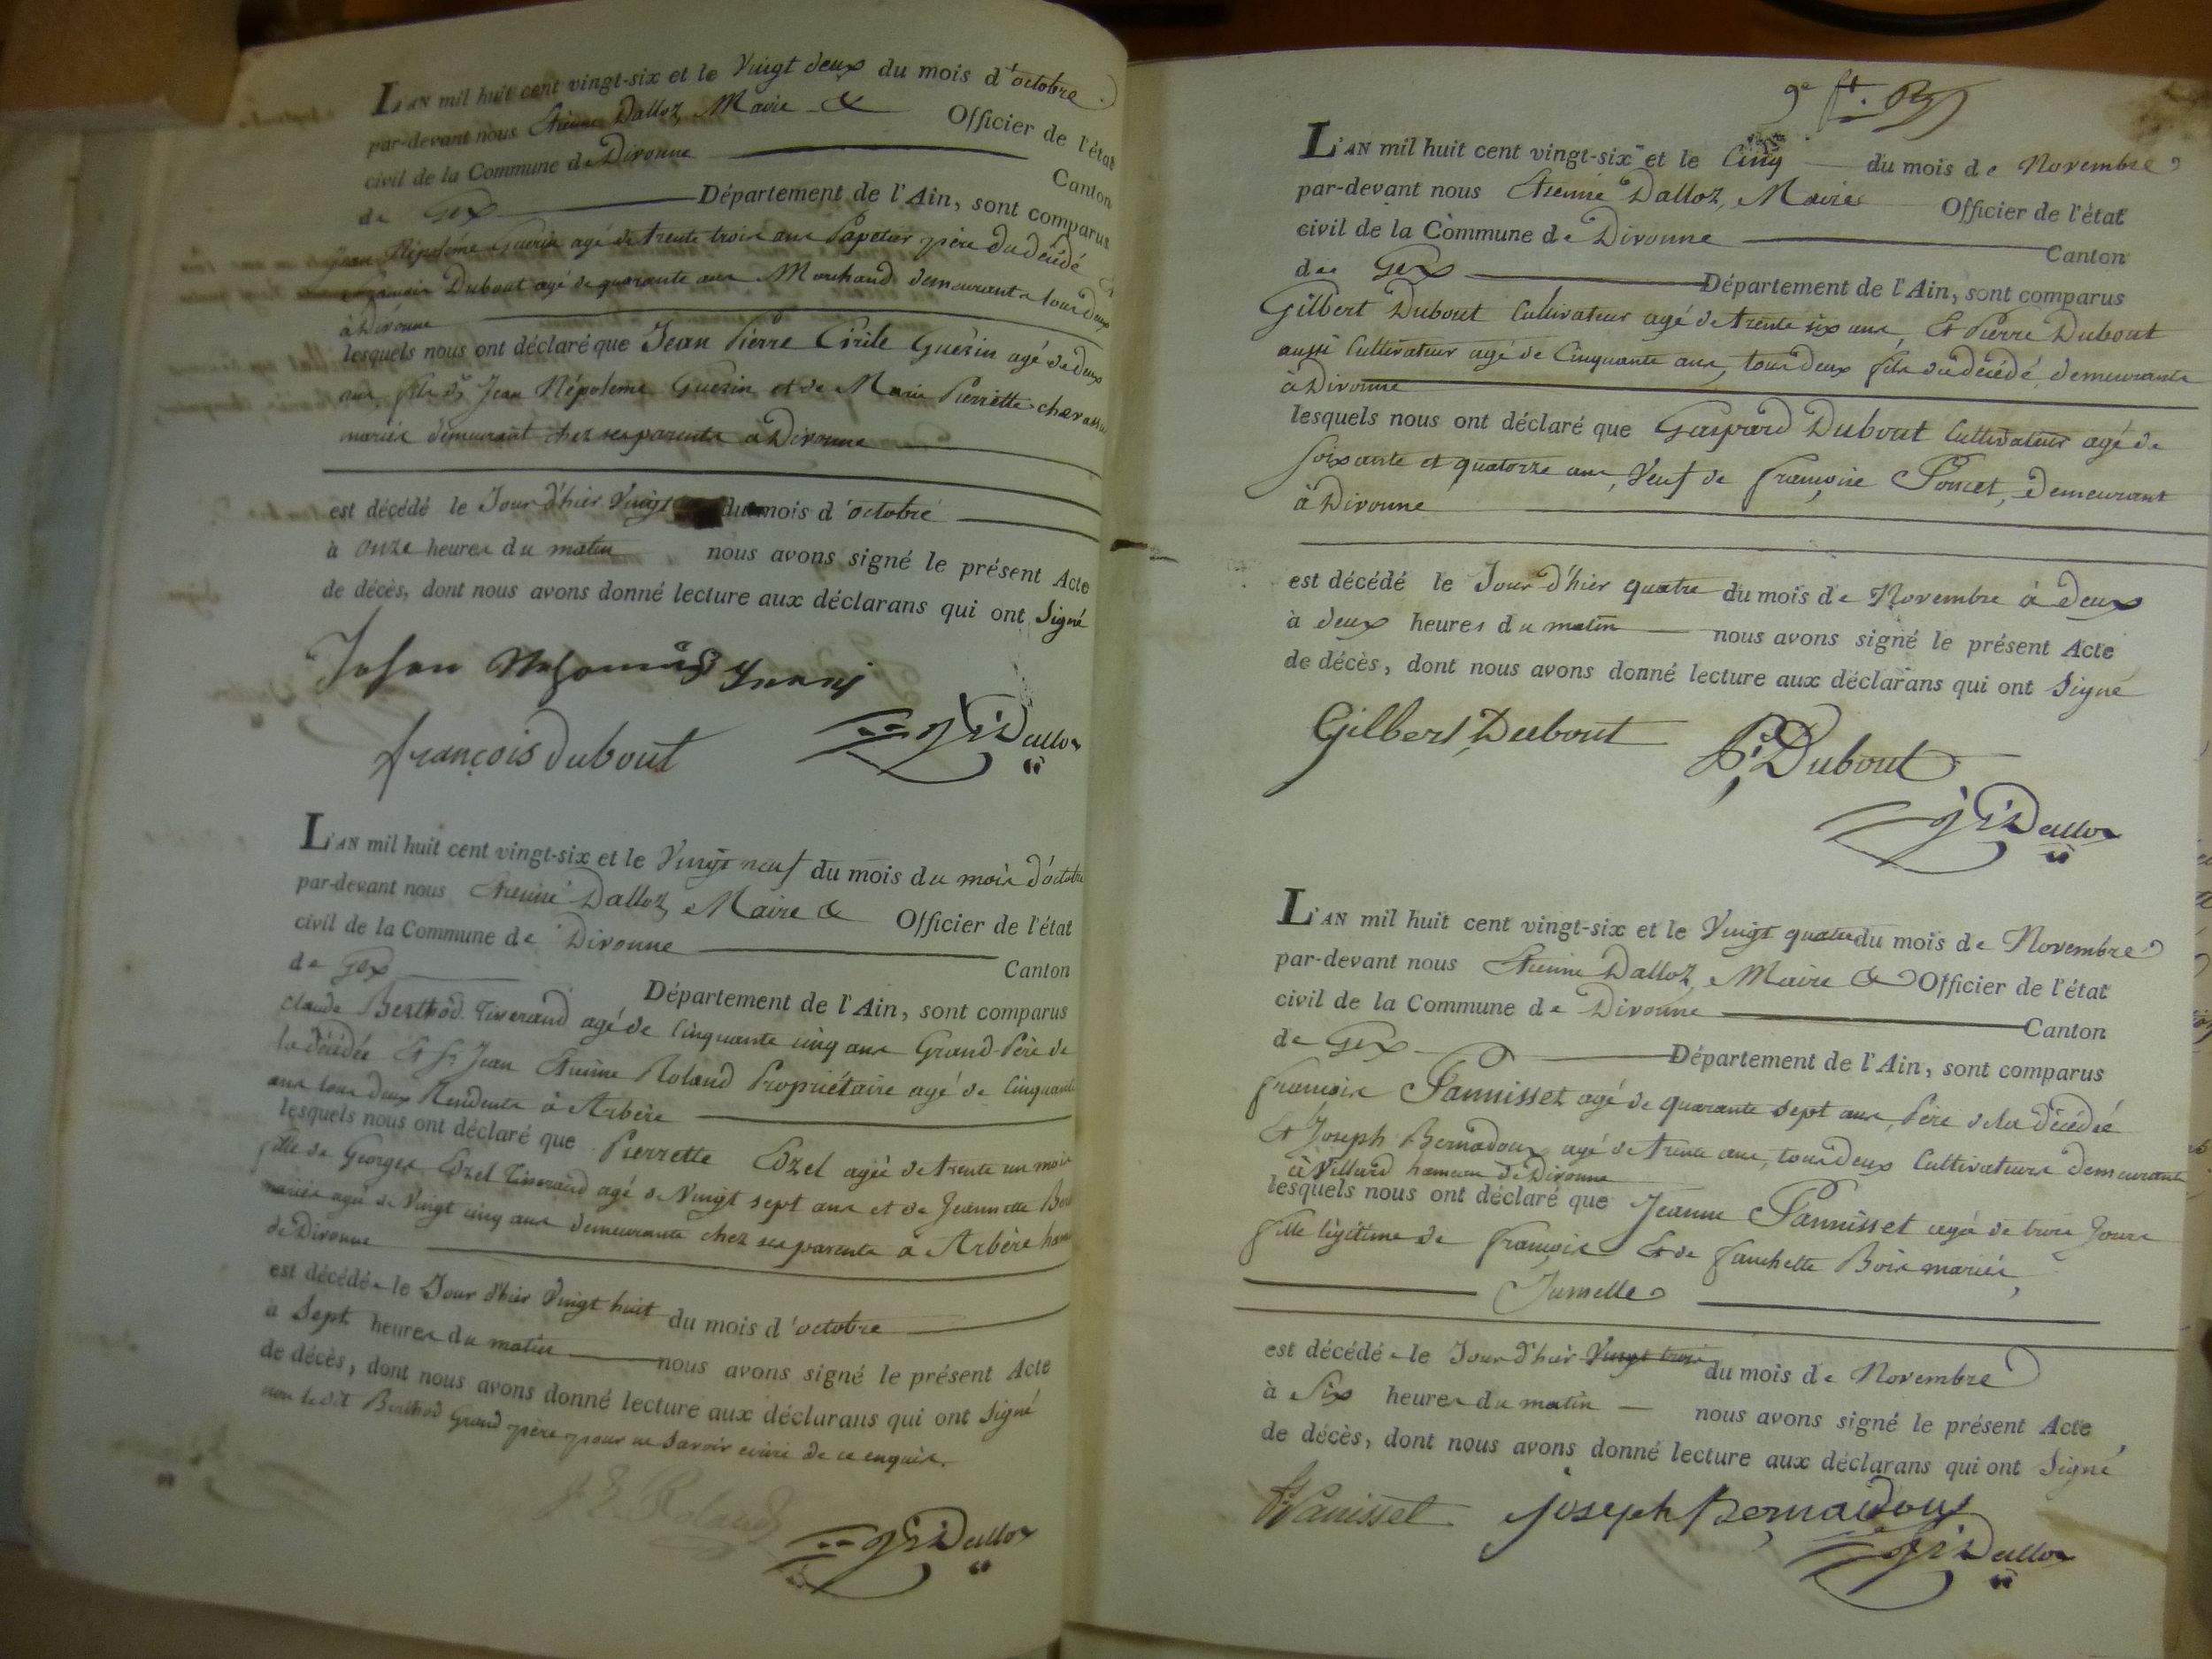 L'AN mil huit cent vingt-six et le Vingt deux du mois d'octobre
par-devant nous Etienne Dalloz, Maire & Officier de l'état
civil de la Commune de Divonne Canton
de Gex Département de l'Ain, sont comparus
Jean Népoleme Guerin agé de trente trois ans Papetier père du décédé Et
françois Dubout agé de quarante ans Marchand demeurants tous deux
à Divonne
lesquels nous ont déclaré que Jean Pierre Cirile Guerin agé de deux
ans, fils de Jean Népoleme Guerin et de Marie Pierrette
mariés demeurant chez ses parents à Divonne
est décédé le Jour d'hier Vingt du mois d'octobre
à onze heures du matin nous avons signé le présent Acte
de décès, dont nous avons donné lecture aux déclarans qui ont Signé
françois dubout
Dalloz
L'AN mil huit cent vingt-six et le Vingt neuf du mois du mois d'octobre
par-devant nous Etienne Dalloz, Maire & Officier de l'état
civil de la Commune de Divonne
de Gex Canton
Département de l'Ain, sont comparus
claude Berthod Tisserand agé de Cinquante cinq ans Grand-Père de
la décédée Et Sr. Jean Etienne Roland Propriétaire agé de Cinquante
ans tous deux Residents à Arbère
lesquels nous ont déclaré que Pierrette Edzel agée de trente un mois
fille de Georges Edzel Tisserand agé de Vingt sept ans et de Jeannette
mariés agée de Vingt cinq ans demeurante chez ses parents à Arbère
de Divonne
est décédée le Jour d'hier Vingt huit du mois d'octobre
à Sept heures du matin nous avons signé le présent Acte
de décès, dont nous avons donné lecture aux déclarans qui ont Signé
non le dit Berthod Grand père pour ne savoir ecrire de ce enquis.
J E Roland
Dalloz
L'AN mil huit cent vingt-six et le Cinq du mois de Novembre
par-devant nous Etienne Dalloz, Maire Officier de l'état
civil de la Commune de Divonne Canton
de Gex Département de l'Ain, sont comparus
Gilbert Dubout Cultivateur agé de trente six ans, Et Pierre Dubout
aussi Cultivateur agé de Cinquante ans, tous deux fils du décédé, demeurants
à Divonne
lesquels nous ont déclaré que Gaspard Dubout Cultivateur agé de
soixante et quatorze ans, Veuf de françoise Poncet, demeurant
à Divonne
est décédé le Jour d'hier quatre du mois de Novembre à deux
à deux heures du matin nous avons signé le présent Acte
de décès, dont nous avons donné lecture aux déclarans qui ont Signé
Gilbert Dubout P. Dubout
Dalloz
L'AN mil huit cent vingt-six et le Vingt quatre du mois de Novembre
par-devant nous Etienne Dalloz, Maire & Officier de l'état
civil de la Commune de Divonne Canton
de Gex Département de l'Ain, sont comparus
françois Pannisset agé de quarante sept ans, Père de la décédée
Et Joseph Bernadoux agé de trente ans, tous deux Cultivateurs demeurants
à Villard hameau de Divonne
lesquels nous ont déclaré que Jeanne Pannisset agée de trois Jours
fille légitime de françois Et de fanchette Bois mariés,
Jumelle
est décédée le Jour d'hier Vingt trois du mois de Novembre
à Six heures du matin nous avons signé le présent Acte,
de décès, dont nous avons donné lecture aux déclarans qui ont Signé
Panisset Joseph Bernadoux
Dalloz